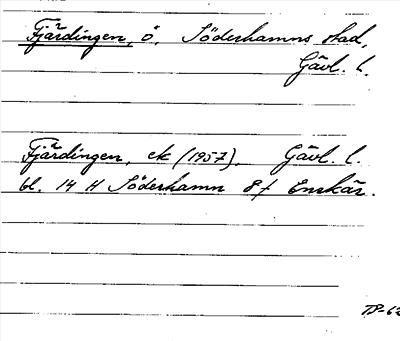 Fjärdingen, ö. Söderhamns stad,
Gävl. l.
Fjärdingen, ek (1957). Gävl. l.
bl. 14 H Söderhamn 8 f Enskär.